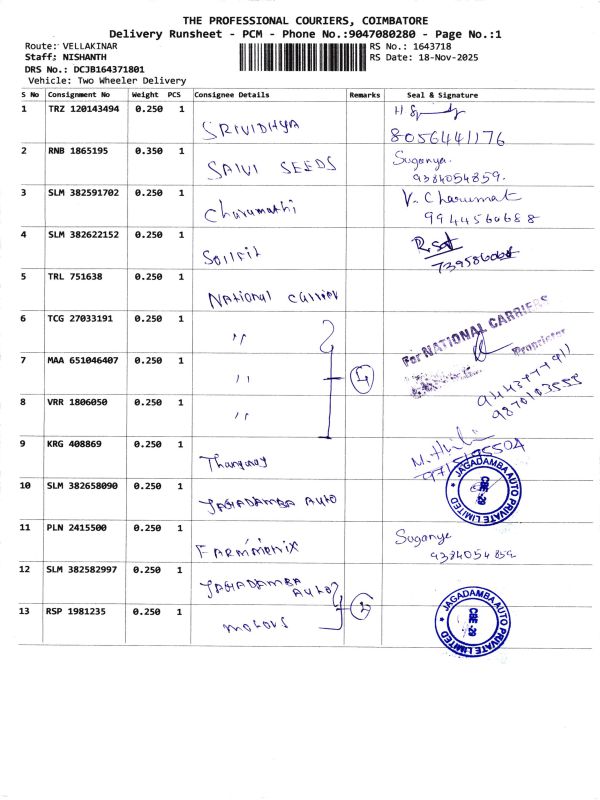 THE PROFESSIONAL COURIERS, COIMBATORE
Delivery Runsheet - PCM - Phone No.:9047080280 - Page No.:1
Route: VELLAKINAR
Staff: NISHANTH
DRS No.: DCJB164371801
Vehicle: Two Wheeler Delivery
RS No.: 1643718
RS Date: 18-Nov-2025
S No Consignment No Weight PCS Consignee Details Remarks Seal & Signature
1 TRZ 120143494 0.250 1 SRIVIDHYA
8056441176
2 RNB 1865195 0.350 1 SAIVI SEEDS Suganya.
9384054859.
3 SLM 382591702 0.250 1 Charumathi V. Charumat
9944560688
4 SLM 382622152 0.250 1 Soilfit
5 TRL 751638 0.250 1 National Carrier
6 TCG 27033191 0.250 1 "
For NATIONAL CARRIERS
Proprietor
7 MAA 651046407 0.250 1 " 4
9443977911
9870103555
8 VRR 1806050 0.250 1 "
9 KRG 408869 0.250 1
10 SLM 382658090 0.250 1 JAGADAMBA AUTO
JAGADAMBA AUTO PRIVATE LIMITED
CBE-29
11 PLN 2415500 0.250 1 FARMMENIX Suganya
9384054859
12 SLM 382582997 0.250 1 JAGADAMBA AUTO
2
JAGADAMBA AUTO PRIVATE LIMITED
CBE-29
13 RSP 1981235 0.250 1 motors